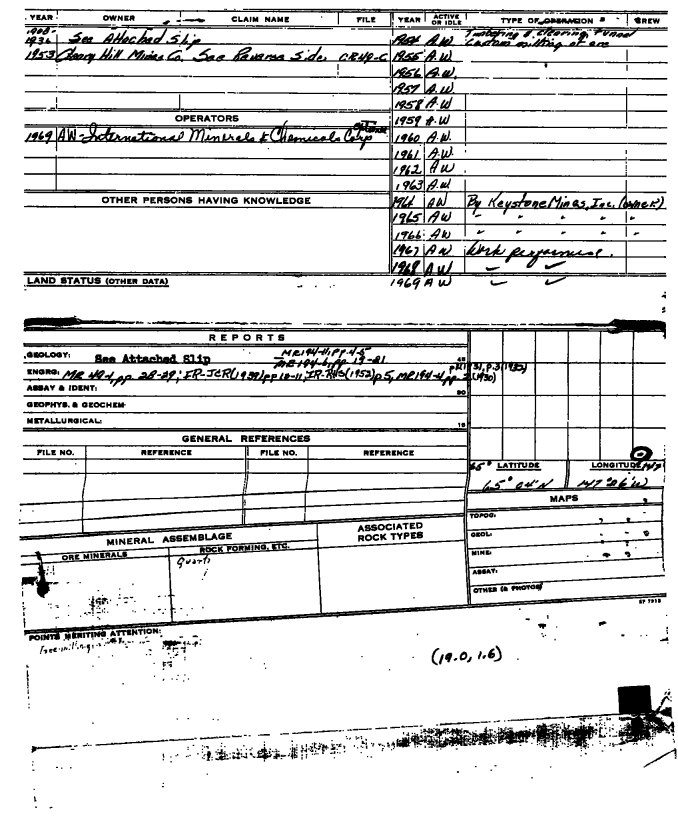 YEAR OWNER CLAIM NAME FILE YEAR ACTIVE OR IDLE TYPE OF OPERATION CREW
1908-
1936 See Attached Slip 1954 A.W. Timbering & clearing tunnel
custom milling of ore
1953 Cleary Hill Mines Co. See Reverse Side. CR49-C 1955 A.W.
1956 A.W.
1957 A.W
1958 A.W
OPERATORS 1959 A.W
1969 AW-International Minerals & Chemicals Corp 1960 A.W.
1961 A.W.
1962 A W
1963 A.W
OTHER PERSONS HAVING KNOWLEDGE 1964 AW By Keystone Mines, Inc. (owner)
1965 AW " " " " "
1966 AW " " " " "
1967 AW Work performed.
1968 AW
LAND STATUS (OTHER DATA) 1969 AW
REPORTS
GEOLOGY: See Attached Slip MR194-11, pp. 4-5
MR194-6, pp. 19-21
ENGRG: MR 49-1, pp. 28-29; IR-JCR(1939) pp 10-11; IR-RHS(1952) p5, MR194-4, pp. (1931), p.3 (1932)
(1930)
ASSAY & IDENT:
GEOPHYS. & GEOCHEM
METALLURGICAL:
GENERAL REFERENCES
FILE NO. REFERENCE FILE NO. REFERENCE
65° LATITUDE LONGITUDE 147
65° 04' N 147° 06' W
MAPS
TOPOG:
GEOL:
MINE:
ASSAY:
OTHER (& PHOTOS)
MINERAL ASSEMBLAGE ASSOCIATED ROCK TYPES
ORE MINERALS ROCK FORMING, ETC.
Quartz
POINTS MERITING ATTENTION:
Free-milling
(19.0, 1.6)